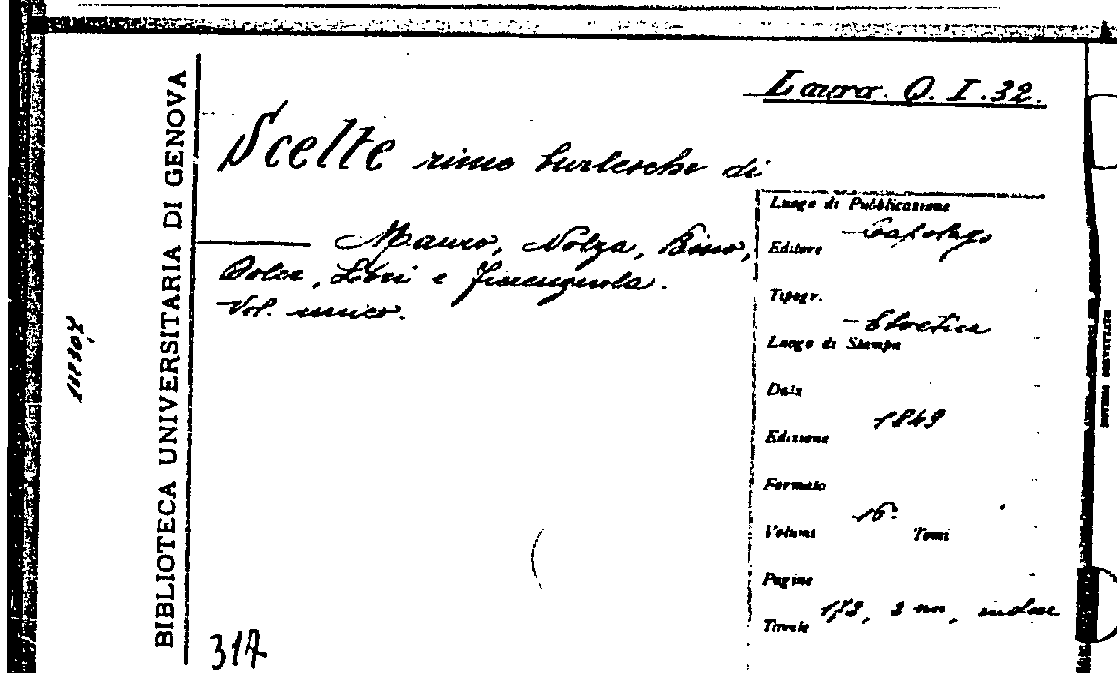 Laura. Q. I. 32.
BIBLIOTECA UNIVERSITARIA DI GENOVA
Scelte rime burlesche di
Mauro, Molza, Bino,
Dolce, Libri e Firenzuola.
Vol. unico.
Luogo di Pubblicazione
Capolago
Editore
Tipogr.
Elvetica
Luogo di Stampa
Data
1849
Edizione
Formato
16°
Volumi Tomi
Pagine
173, 2 nn, indice
Tavole
317